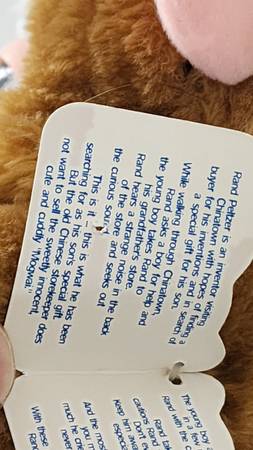 Rand Peltzer is an inventor visiting
Chinatown with hopes of finding a
buyer for his inventions and in search of
a special gift for his son.
While walking through Chinatown,
Rand asks a young boy for help and
the young boy takes Rand to
his grandfather's store.
Rand hears a strange noise in the back
of the store and seeks out
the curious sound.
This is it – this is what he has been
searching for as his son's special gift.
But the old Chinese storekeeper does
not want to sell the sweetly innocent,
cute and cuddly "Mogwai."
The young boy
in a few
Rand with the
Rand
cautions Rand
Don't
keep him
And the
you
much he
never
With these
Rand